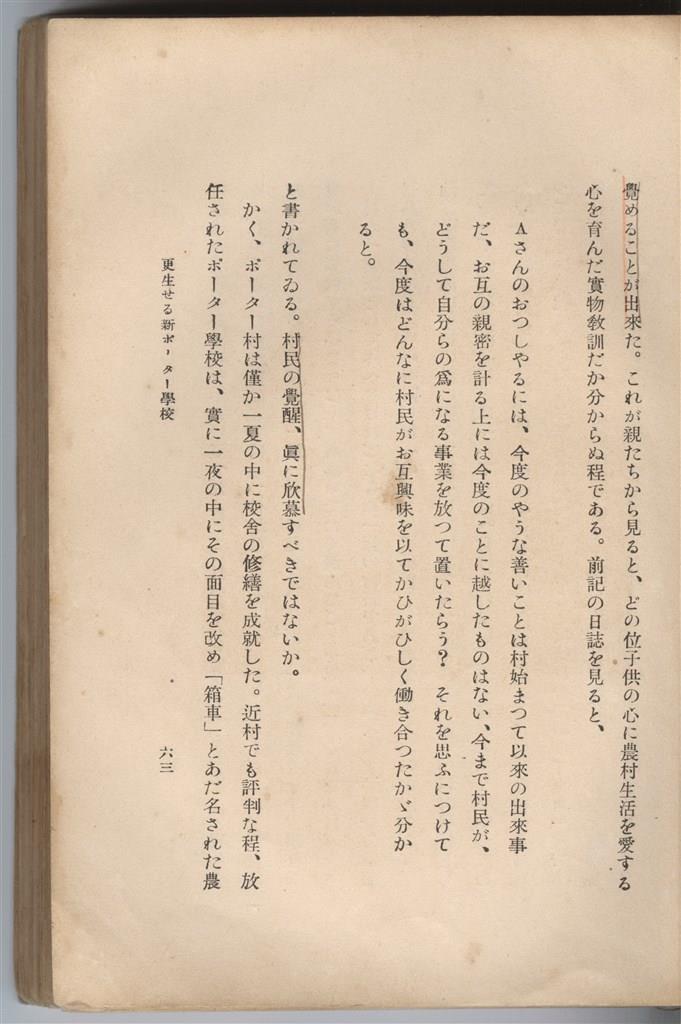 覺めることが出來た。これが親たちから見ると、どの位子供の心に農村生活を愛する
心を育んだ實物敎訓だか分からぬ程である。前記の日誌を見ると、
Aさんのおつしやるには、今度のやうな善いことは村始まつて以來の出來事
だ、お互の親密を計る上には今度のことに越したものはない、今まで村民が、
どうして自分らの爲になる事業を放つて置いたらう？　それを思ふにつけて
も、今度はどんなに村民がお互興味を以てかひがひしく働き合つたかゞ分か
ると。
と書かれてゐる。村民の覺醒、眞に欣慕すべきではないか。
かく、ポーター村は僅か一夏の中に校舍の修繕を成就した。近村でも評判な程、放
任されたポーター學校は、實に一夜の中にその面目を改め「箱車」とあだ名された農
更生せる新ポーター學校
六三